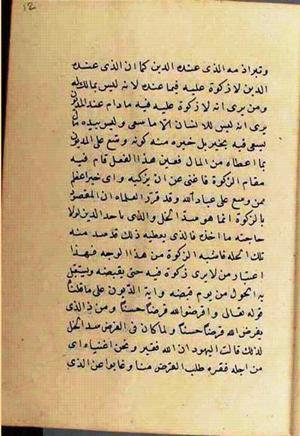 وتبراذمه الذى عنده الدين كما ان الذى عنده
الدين لا زكوة عليه فيما عنده لانه ليس بمالك له
ومن يرى انه لا زكوة عليه فيه ما دام عند المديون
يرى انه ليس للانسان الا ما سعى وليس بيده ما
يسعى فيه بخير بل خيره منه كونه وسع على المديون
بما اعطاه من المال فعين هذا الفعل قام فيه
مقام الزكوة فاغنى عن ان يزكيه واى خير اعظم
ممن وسع على عباد الله وقد قرر العلماء ان المقصود
بالزكوة انما هو سد الخلل والذى ياخذ الدين لولا
حاجته ما اخذه فالذى يعطيه ذلك قد سد منه
تلك الخلة فاشبه الزكوة من هذا الوجه فهذا
اعتبار من لا يرى زكوة فيه حتى يقبضه ويستقبل
به الحول من يوم قبضه واية الذاهبون على ما قلناه
قوله تعالى واقرضوا الله قرضا حسنا ومن ذا الذى
يقرض الله قرضا حسنا ولما كان فى القرض سد الخلل
لذلك قالت اليهود ان الله فقير ونحن اغنياء اى
من اجله فقره طلب القرض منا وغابوا عن الذى